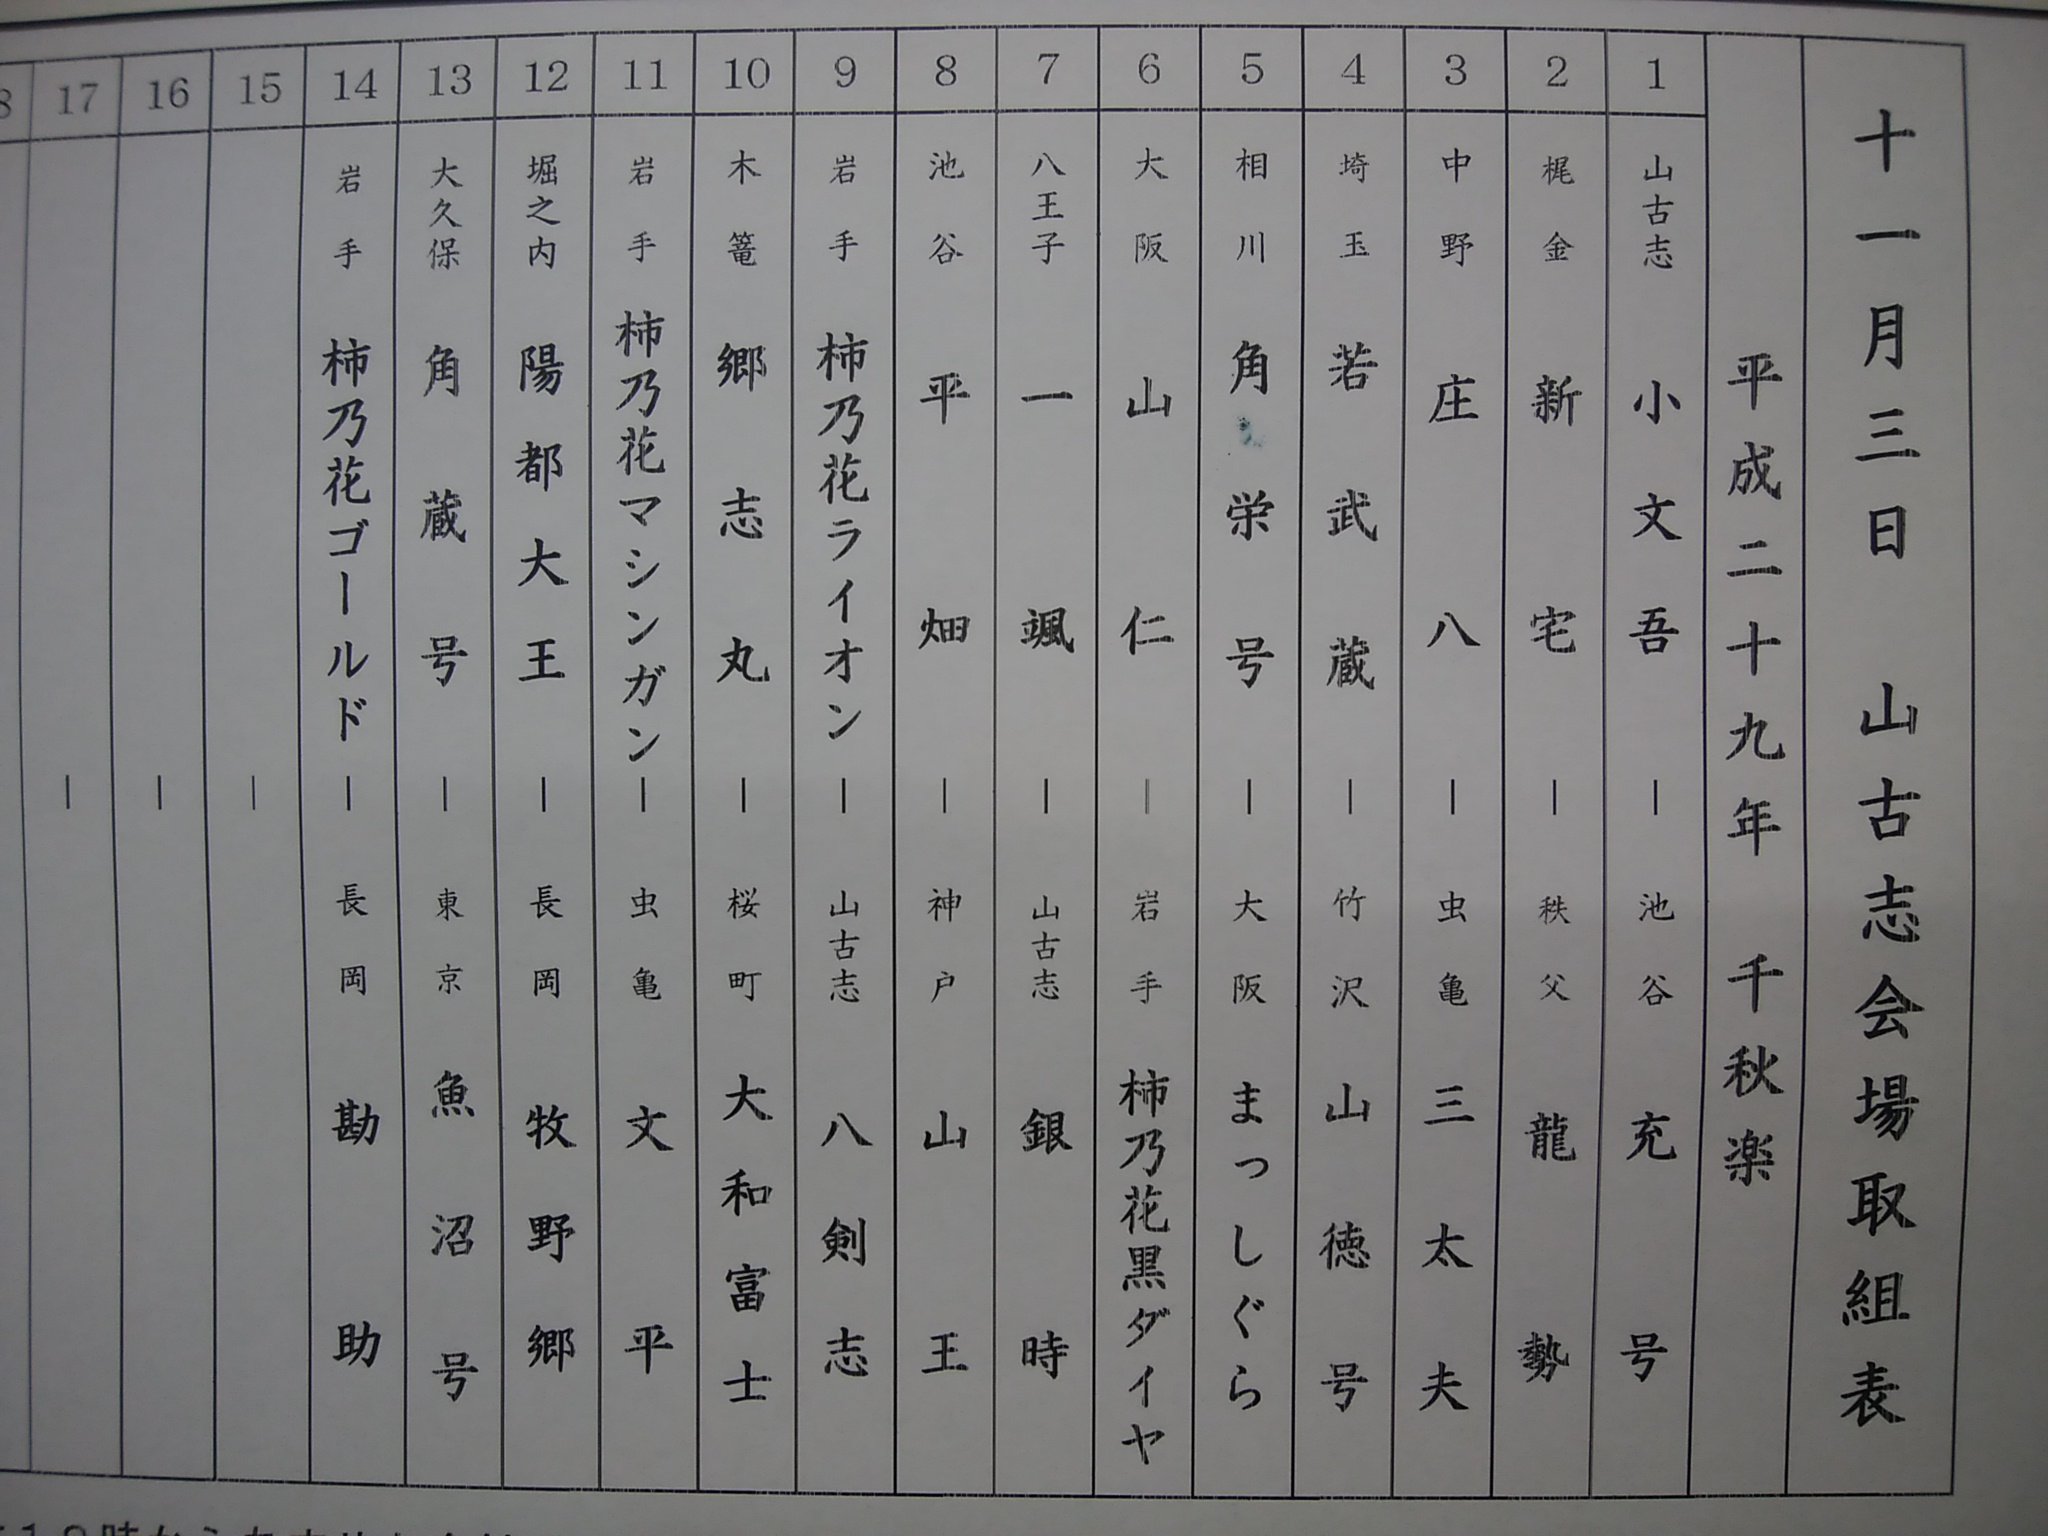 十一月三日　山古志会場取組表
平成二十九年　千秋楽
1 山古志 小文吾 － 池谷 充号
2 梶金 新宅 － 秩父 龍勢
3 中野 庄八 － 虫亀 三太夫
4 埼玉 若武蔵 － 竹沢 山徳号
5 相川 角栄号 － 大阪 まっしぐら
6 大阪 山仁 － 岩手 柿乃花黒ダイヤ
7 八王子 一颯 － 山古志 銀時
8 池谷 平畑 － 神戸 山王
9 岩手 柿乃花ライオン － 山古志 八剣志
10 木篭 郷志丸 － 桜町 大和富士
11 岩手 柿乃花マシンガン － 虫亀 文平
12 堀之内 陽都大王 － 長岡 牧野郷
13 大久保 角蔵号 － 東京 魚沼号
14 岩手 柿乃花ゴールド － 長岡 勘助
15 －
16 －
17 －